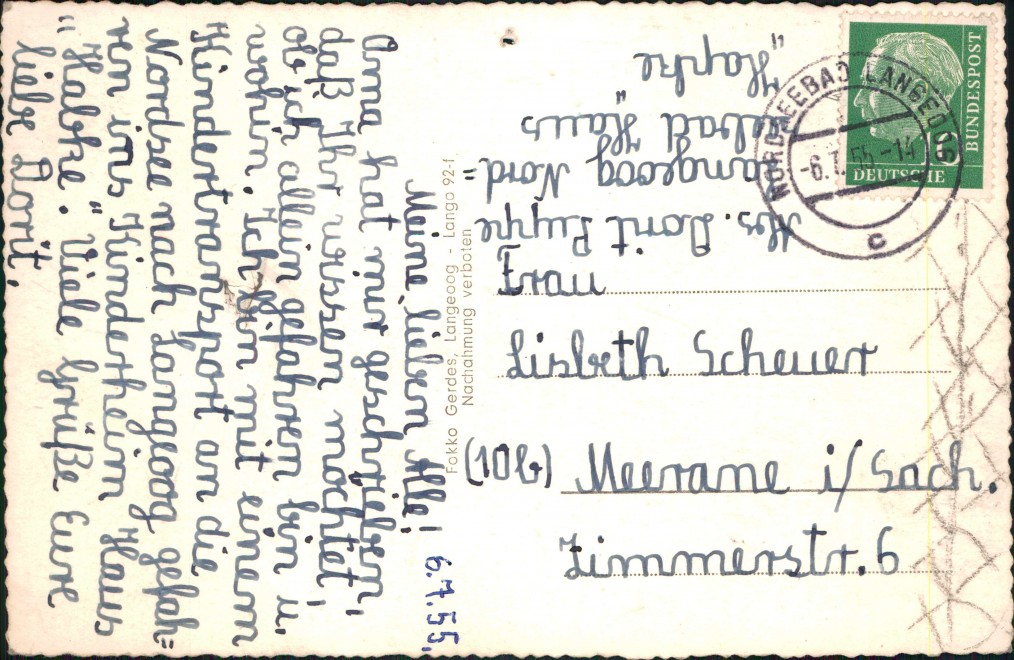 6.7.55.
Meine lieben Alle!
Oma hat mir geschrieben,
daß Ihr wissen möchtet,
ob ich allein gefahren bin u.
wohin. Ich bin mit einem
Kindertransport an die
Nordsee nach Langeoog gefah=
ren ins "Kinderheim Haus
"Habske". Viele Grüße Eure
liebe Dorit.
Fokko Gerdes, Langeoog - Lango 92-f.
Nachahmung verboten
Abs. Dorit Puppe
Langeoog Nord=
seebad Haus "
Hapke "
NORDSEEBAD LANGEOOG
-6.7.55-14
c
BUNDESPOST
DEUTSCHE
10
Frau
Lisbeth Scheuer
(10b) Meerane i/Sach.
Zimmerstr. 6